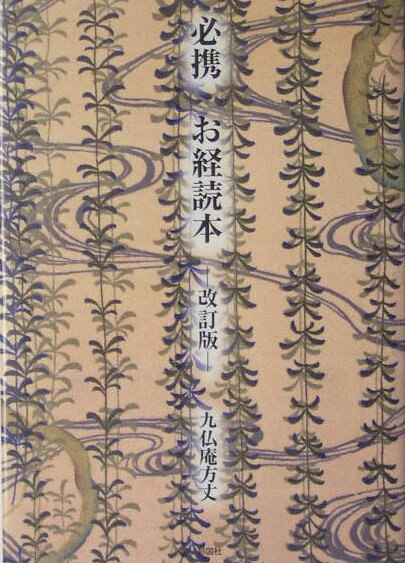 必携 お経読本
―改訂版―
九仏庵方丈